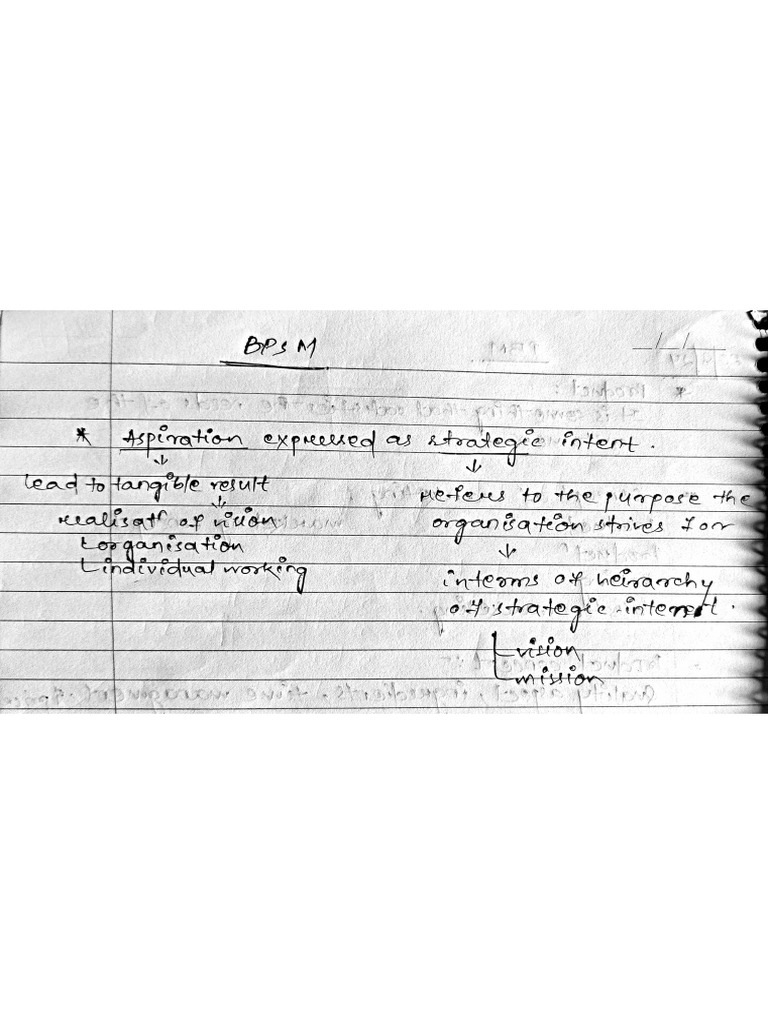 BPSM
* Aspiration expressed as strategic intent.
↓ ↓
lead to tangible result
↓
realisatn of vision
organisation
individual working
refers to the purpose the
organisation strives for
↓
interms of heirarchy
of strategic intent.
vision
mission